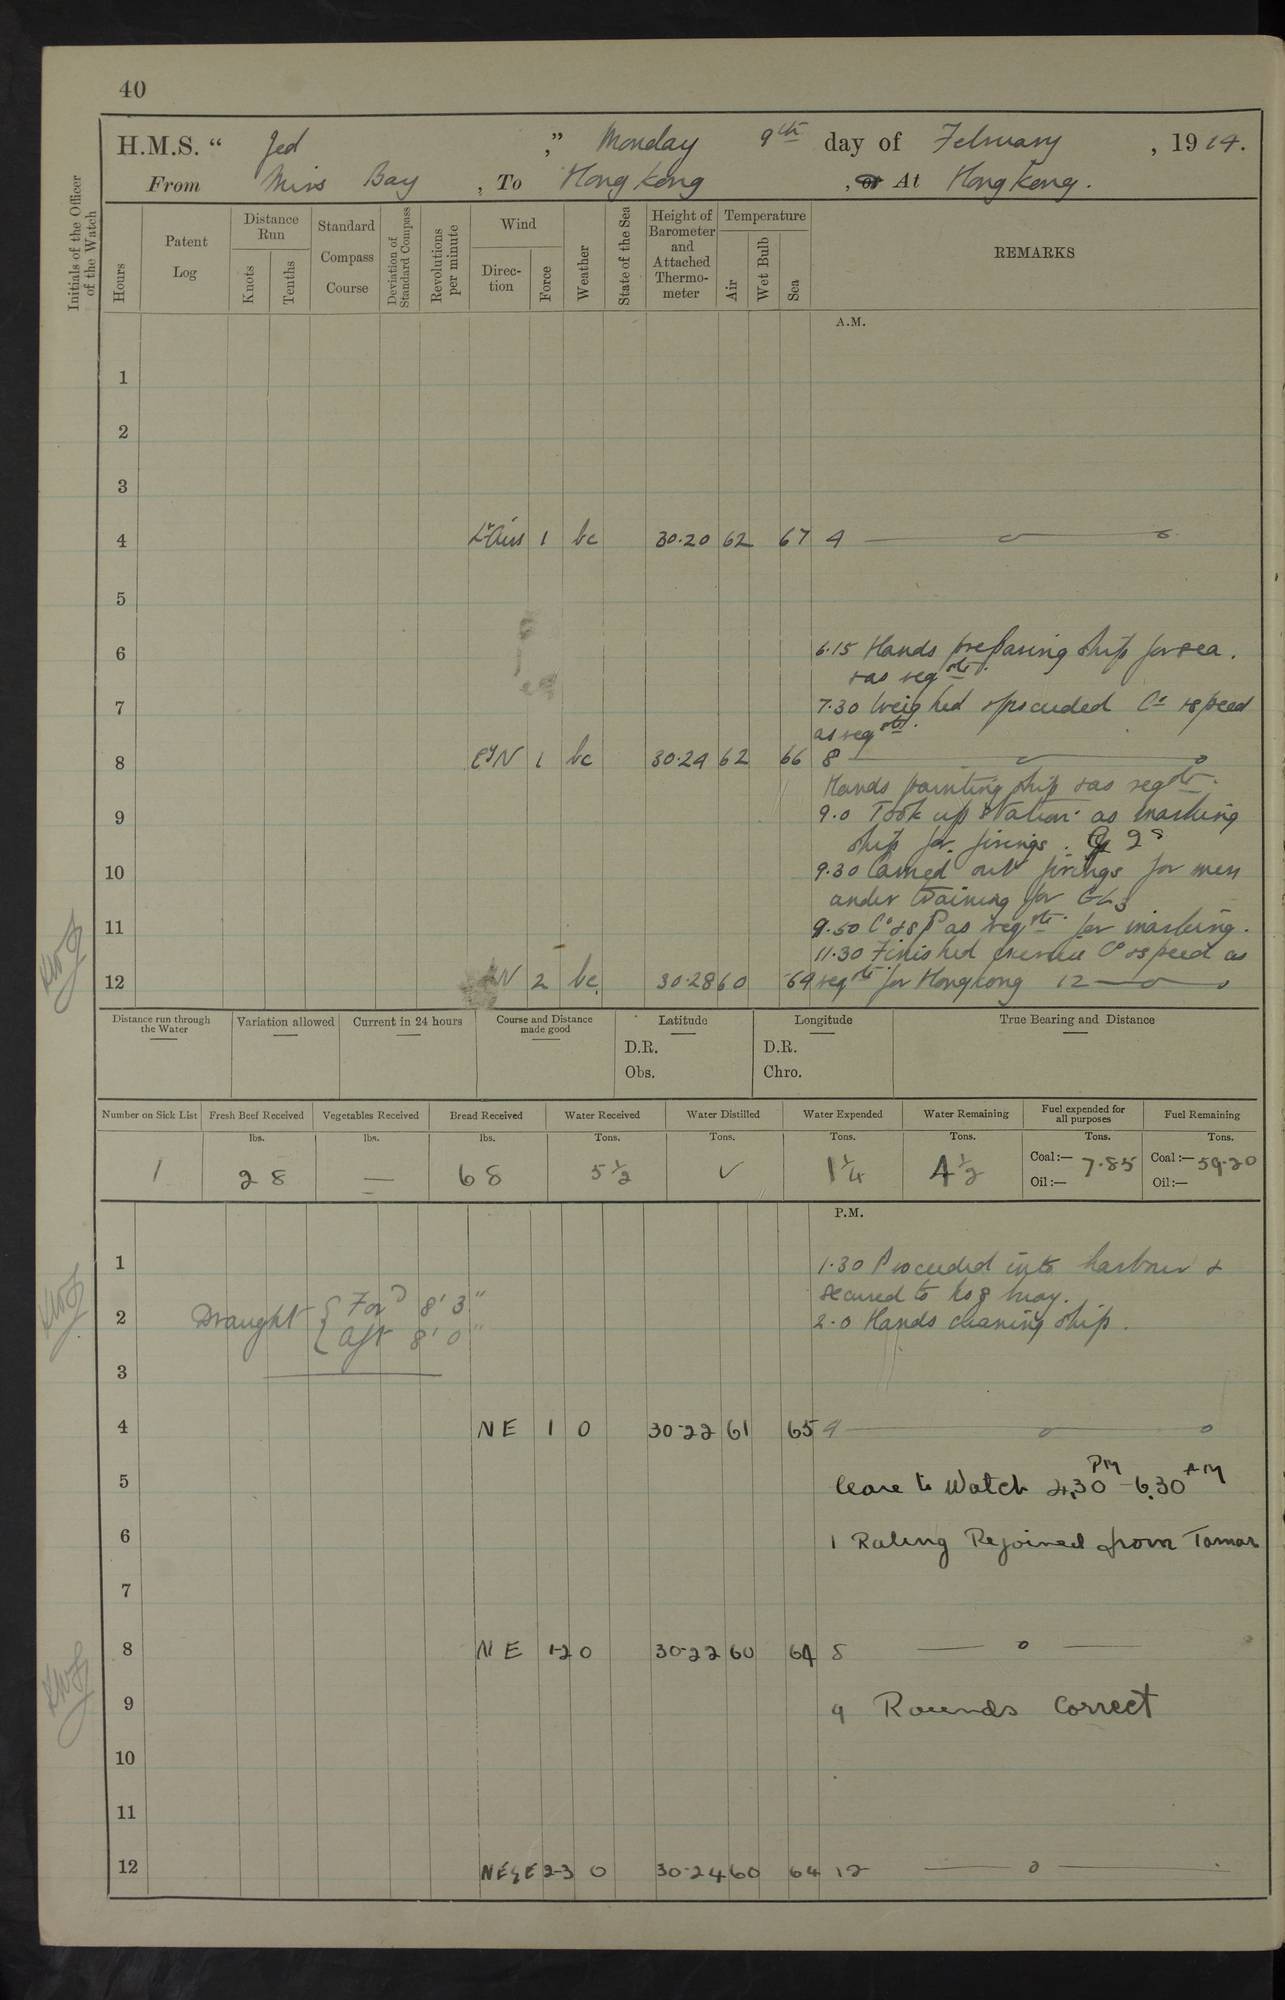 40
H.M.S. “ Jed ,” Monday 9th day of February , 1914.
From Mirs Bay , To Hong Kong , or At Hong Kong.
Initials of the Officer of the Watch
Hours
Patent Log
Distance Run
Knots
Tenths
Standard Compass Course
Deviation of Standard Compass
Revolutions per minute
Wind
Direction
Force
Weather
State of the Sea
Height of Barometer and Attached Thermometer
Temperature
Air
Wet Bulb
Sea
REMARKS
A.M.
1
2
3
4 Lt Airs 1 bc 30.20 62 67 4
5
6 6.15 Hands preparing ship for sea.
& as reqte.
7 7.30 Weighed & proceeded Co & speed
as reqte.
8 EyN 1 bc 30.24 62 66 8
Hands painting ship & as reqte.
9 9.0 Took up station as marking
ship for firings.
10 9.30 Carried out firings for men
under training for GL3
11 9.50 Co & sp as reqte. for marking.
11.30 Finished exercise Co & speed as
12 N 2 bc. 30.28 60 64 reqte. for Hong Kong 12
Distance run through the Water
Variation allowed
Current in 24 hours
Course and Distance made good
Latitude
D.R.
Obs.
Longitude
D.R.
Chro.
True Bearing and Distance
Number on Sick List Fresh Beef Received Vegetables Received Bread Received Water Received Water Distilled Water Expended Water Remaining Fuel expended for all purposes Fuel Remaining
lbs. lbs. lbs. Tons. Tons. Tons. Tons. Tons. Tons.
1 28 — 68 5½ ✓ 1¼ 4½ Coal:— 7.85 Coal:— 59.20
Oil:— Oil:—
P.M.
1 1.30 Proceeded into harbour &
secured to No 8 buoy.
2 Draught { Ford 8' 3" 2.0 Hands cleaning ship.
{ Aft 8' 0"
3
4 NE 1 0 30.22 61 65 4
5 Leave to Watch 4.30 PM - 6.30 AM
6 1 Rating Rejoined from Tamar
7
8 NE 1-2 0 30.22 60 64 8
9 9 Rounds Correct
10
11
12 NE½E 2-3 0 30.24 60 64 12